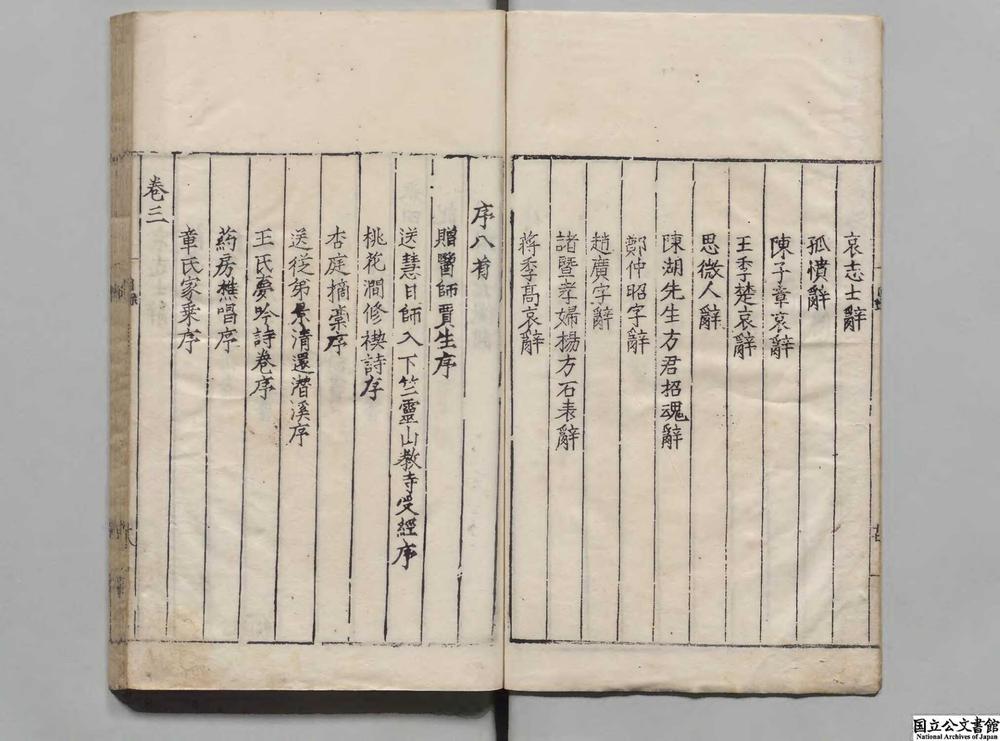 哀志士辭
孤憤辭
陳子章哀辭
王季楚哀辭
思微人辭
陳湖先生方君招魂辭
鄭仲昭字辭
趙廣字辭
諸暨孝婦楊方石表辭
蔣季高哀辭
序八首
贈醫師賈生序
送慧日師入下竺靈山教寺受經序
桃花澗修禊詩序
杏庭摘稾序
送從弟景清還潛溪序
王氏夢吟詩卷序
葯房樵唱序
章氏家乘序
卷三
国立公文書館
National Archives of Japan